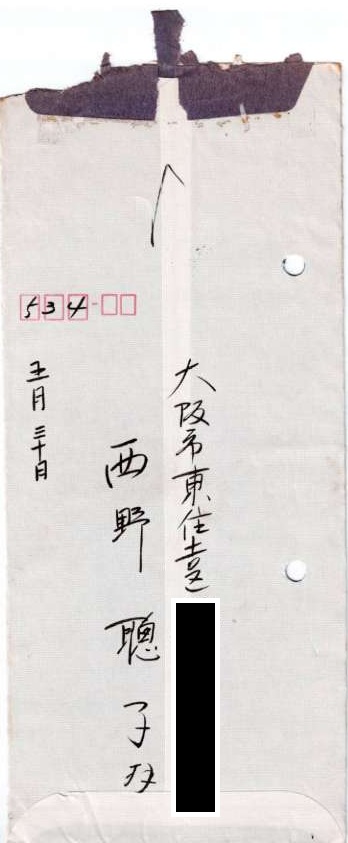 534
大阪市東住吉区
西野聰子
五月三十日